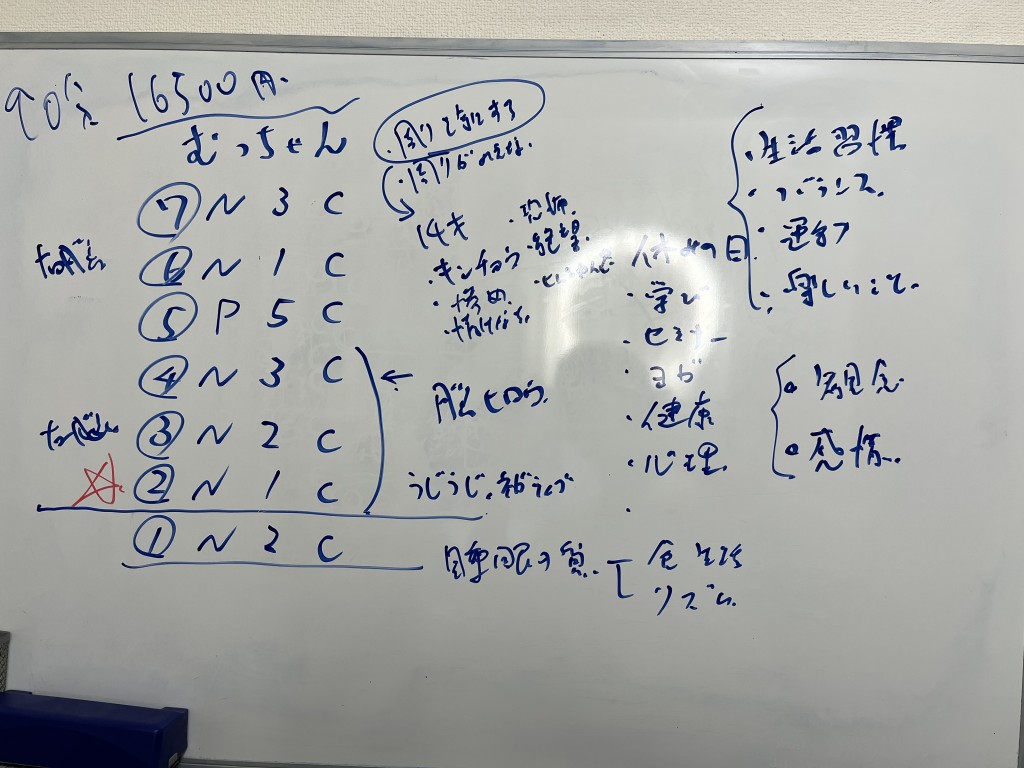 90分 16500円.
むっちゃん
⑦ N 3 C
⑥ N 1 C
⑤ P 5 C
④ N 3 C
③ N 2 C
② N 1 C
① N 2 C
・周りを気にする
・周りが
・キンチョウ
・絶望
脳ヒロウ
うじうじ.ネガティブ
睡眠の質.
食生活
リズム
休みの日
・学び
・セミナー
・ヨガ
・健康
・心理.
・生活習慣
・バランス.
・運動
・楽しいこと.
・観念.
・感情.